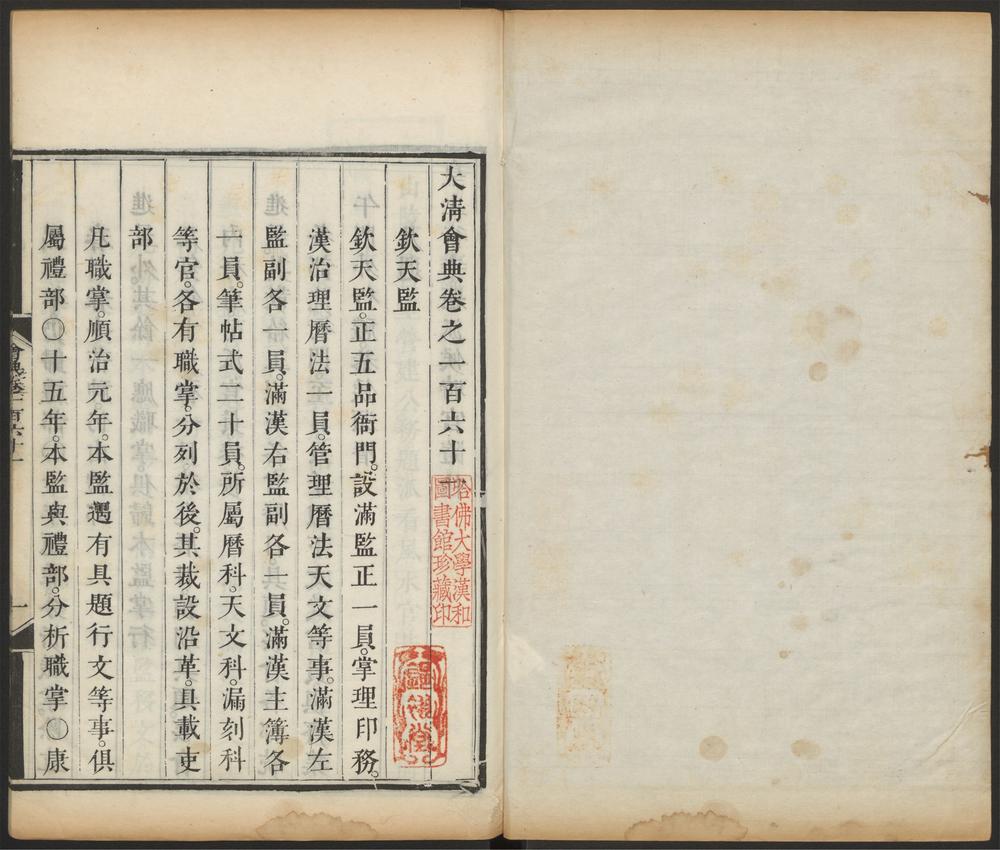 大淸會典卷之一百六十一
欽天監
欽天監。正五品衙門。設滿監正一員。掌理印務。
漢治理曆法一員。管理曆法天文等事。滿漢左
監副各一員。滿漢右監副各一員。滿漢主簿各
一員。筆帖式二十員。所屬曆科。天文科。漏刻科
等官。各有職掌。分列於後。其裁設沿革。具載吏
部
凡職掌。順治元年。本監遇有具題行文等事。俱
屬禮部〇十五年。本監與禮部。分析職掌〇康
會典卷一百六十一
一
哈佛大學漢和
圖書館珍藏印